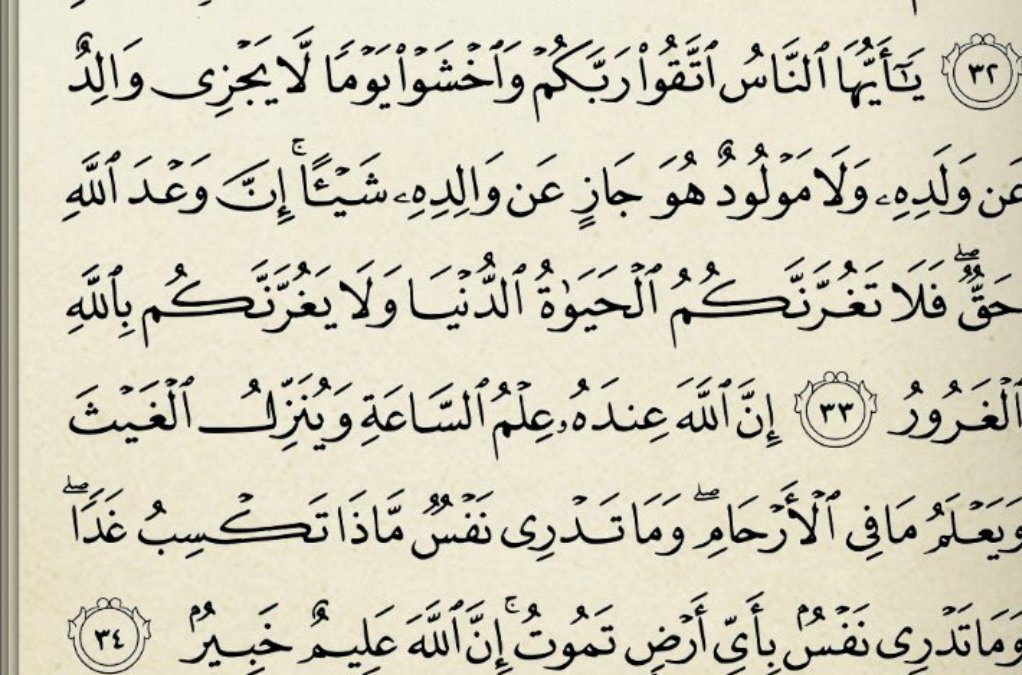 ٣٢ يَـٰٓأَيُّهَا ٱلنَّاسُ ٱتَّقُوا۟ رَبَّكُمْ وَٱخْشَوْا۟ يَوْمًا لَّا يَجْزِى وَالِدٌ
عَن وَلَدِهِۦ وَلَا مَوْلُودٌ هُوَ جَازٍ عَن وَالِدِهِۦ شَيْـًٔا ۚ إِنَّ وَعْدَ ٱللَّهِ
حَقٌّ ۖ فَلَا تَغُرَّنَّكُمُ ٱلْحَيَوٰةُ ٱلدُّنْيَا وَلَا يَغُرَّنَّكُم بِٱللَّهِ
ٱلْغَرُورُ ٣٣ إِنَّ ٱللَّهَ عِندَهُۥ عِلْمُ ٱلسَّاعَةِ وَيُنَزِّلُ ٱلْغَيْثَ
وَيَعْلَمُ مَا فِى ٱلْأَرْحَامِ ۖ وَمَا تَدْرِى نَفْسٌ مَّاذَا تَكْسِبُ غَدًا ۖ
وَمَا تَدْرِى نَفْسٌۢ بِأَىِّ أَرْضٍ تَمُوتُ ۚ إِنَّ ٱللَّهَ عَلِيمٌ خَبِيرٌۢ ٣٤